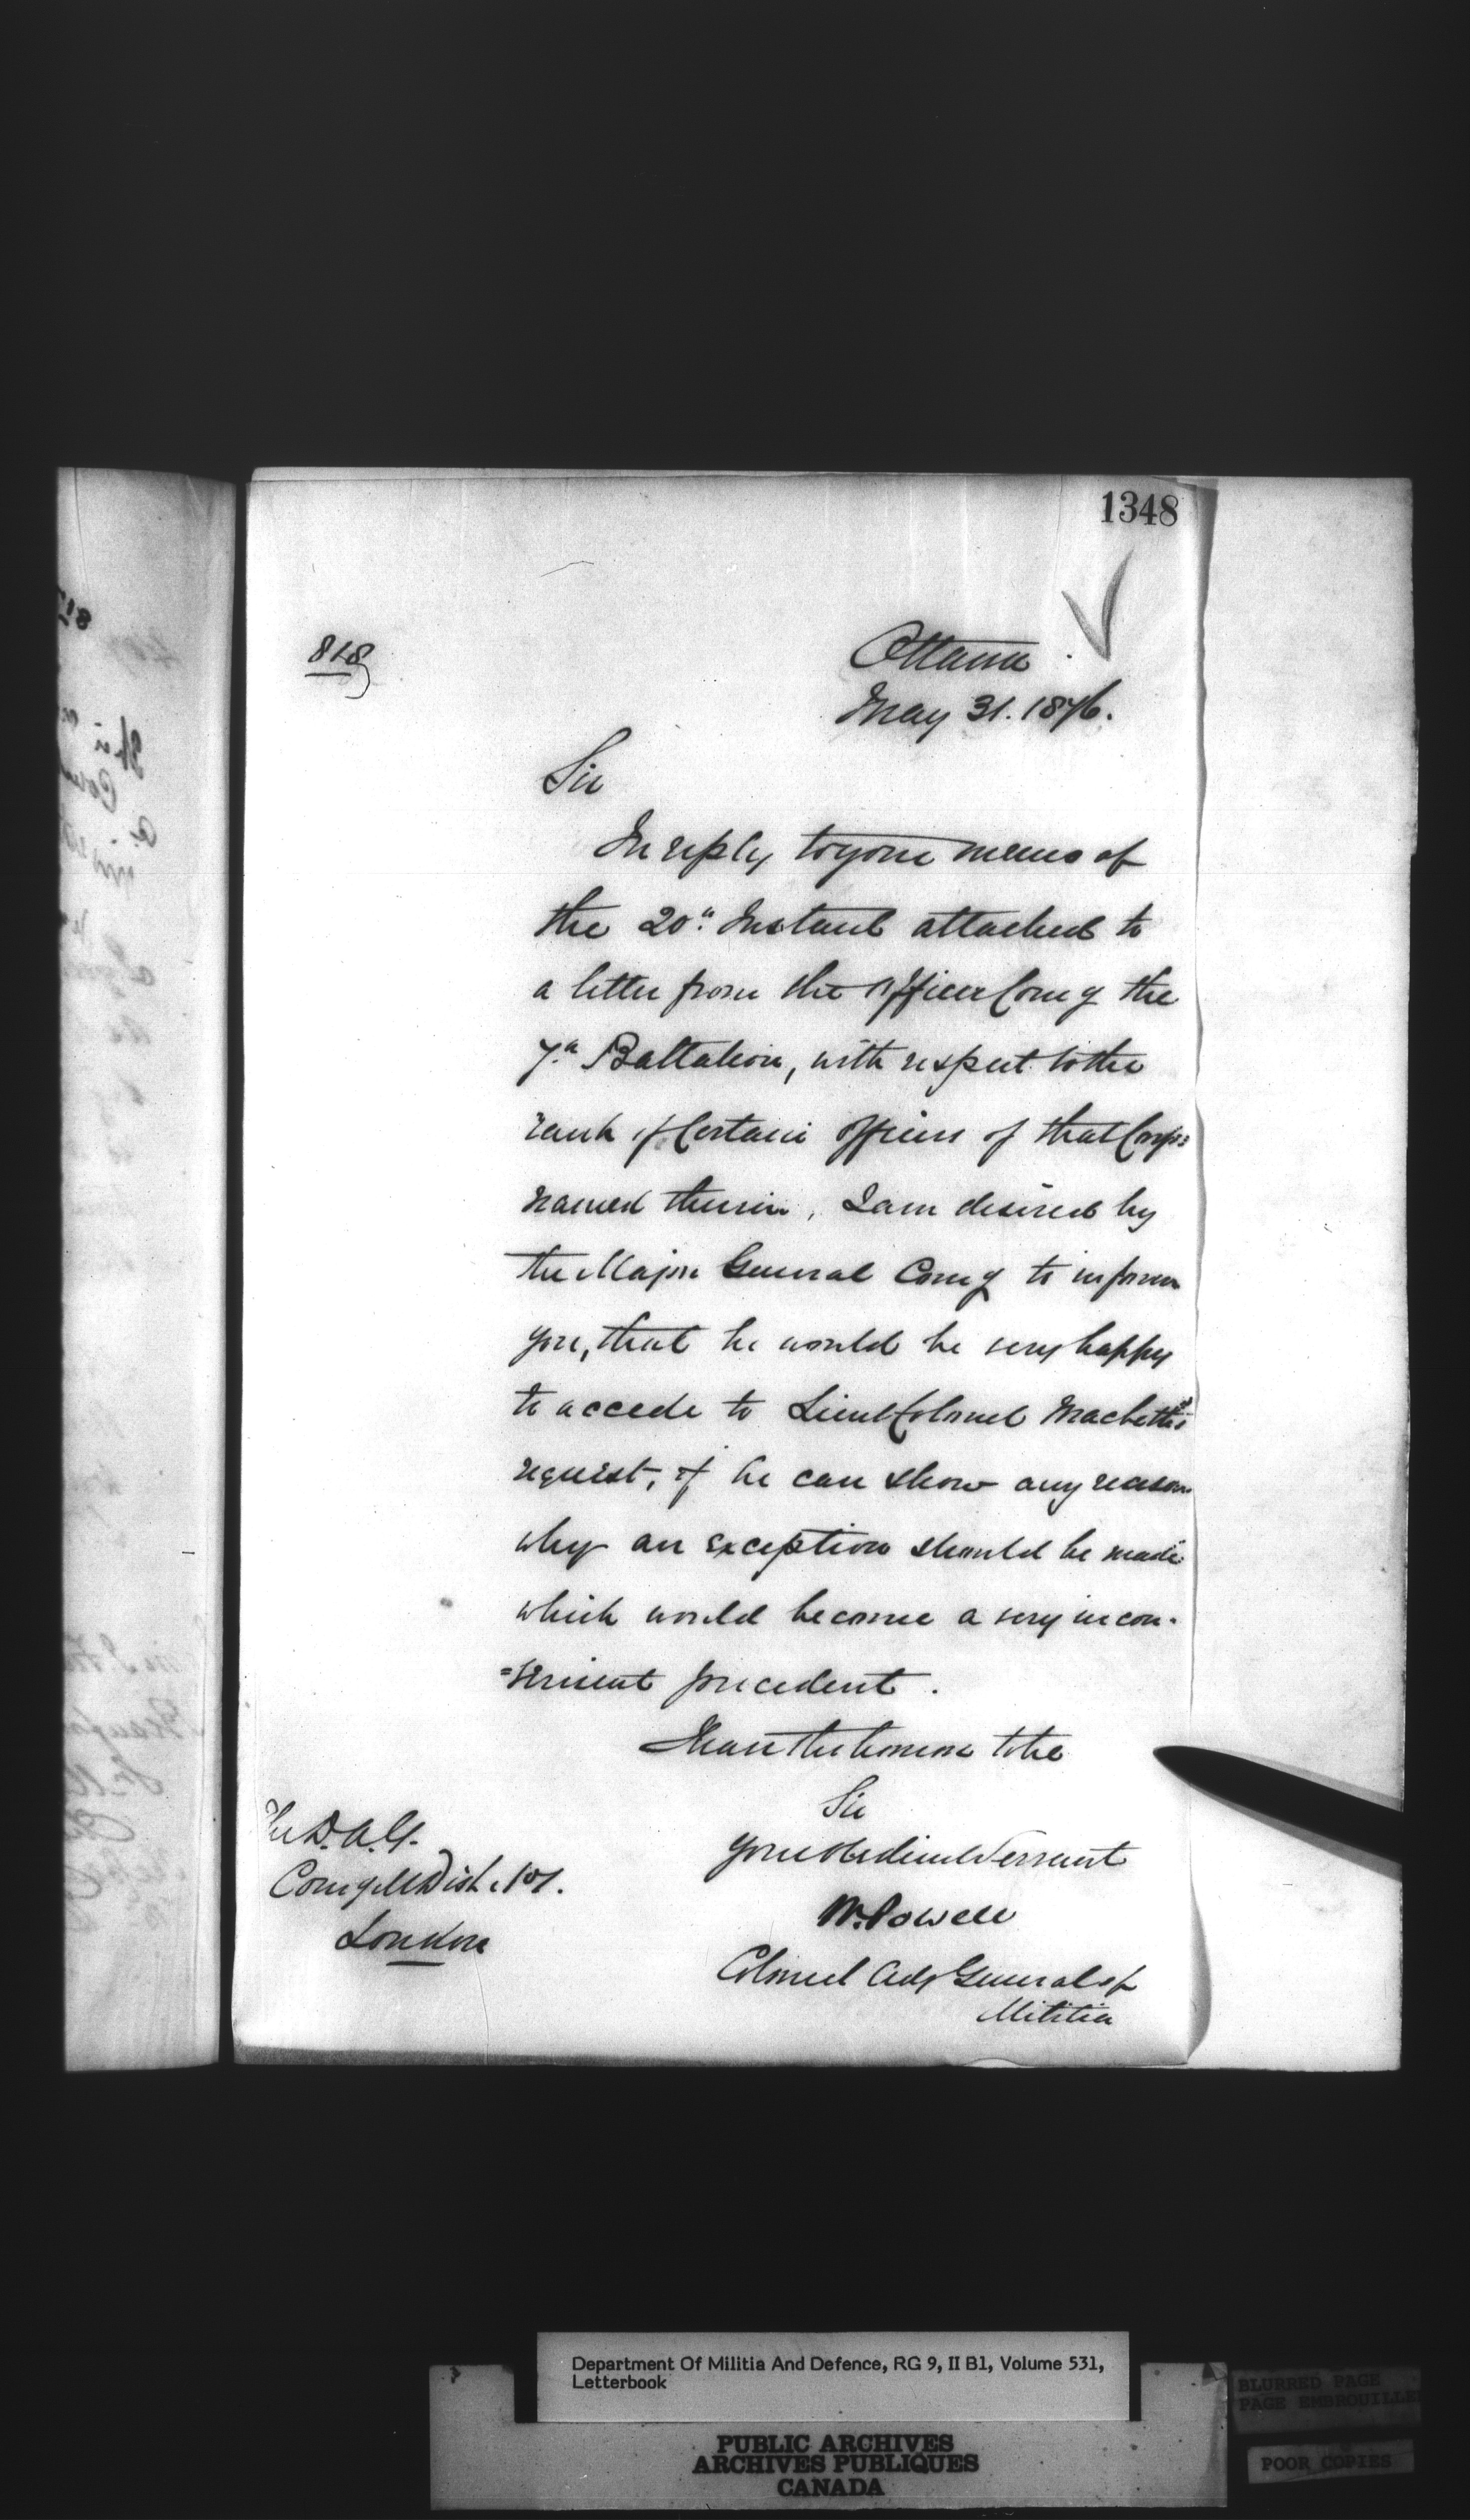 1348
818
Ottawa
May 31. 1876.
Sir
In reply to your memo of
the 20th Instant attached to
a letter from the Officer Comg the
7th Battalion, with respect to the
rank of Certain officers of that Corps
named therein, I am desired by
the Major General Comg to inform
you, that he would be very happy
to accede to Lieut Colonel Macbeth's
request, if he can show any reason
why an exception should be made
which would become a very incon-
=venient precedent.
I have the honour to be
Sir
Your obedient Servant
W. Powell
Colonel Adj General of
Militia
The D.A.G.
Comg M Dist. No 1.
London
Department Of Militia And Defence, RG 9, II B1, Volume 531,
Letterbook
PUBLIC ARCHIVES
ARCHIVES PUBLIQUES
CANADA
BLURRED PAGE
PAGE EMBROUILLEE
POOR COPIES